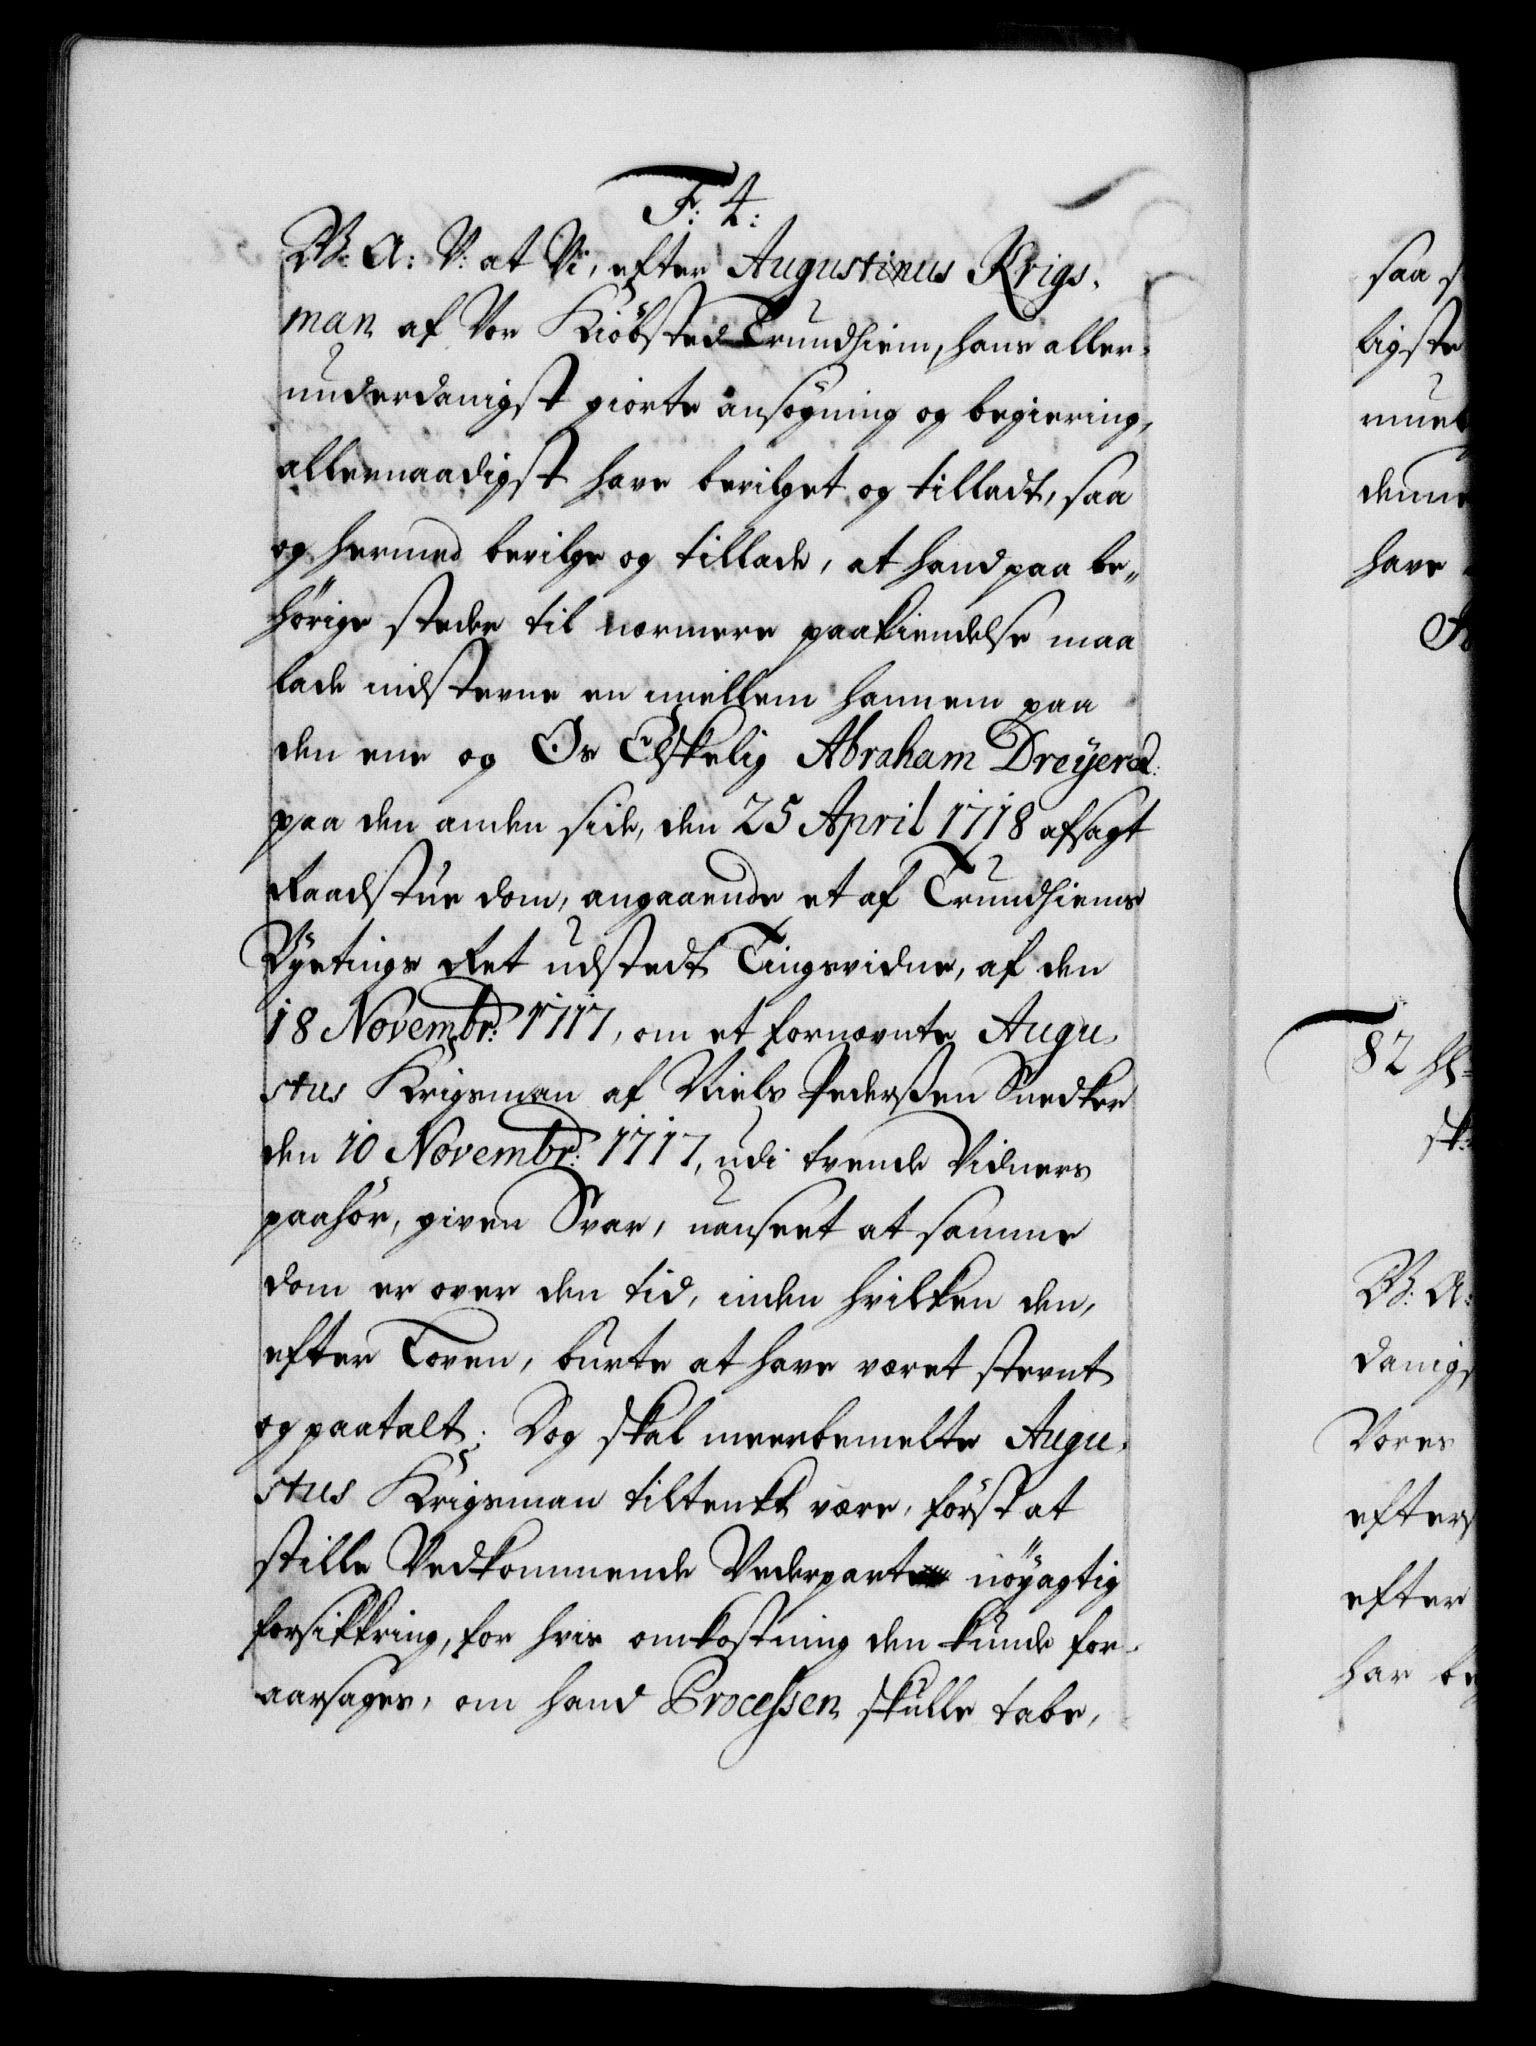 F: 4:
G: A: V: at Vi, efter Augustinus Krigs-
man af Vor Kiöbsted Trundhiem, hans aller-
underdanigst giorte ansøgning og begiering,
allernaadigst have bevilget og tilladt, saa
og hermed bevilge og tillade, at hand paa be-
hörige steder til nærmere paakiendelse maa
lade indstevne en imellem hannem paa
den ene og Os Elskelig Abraham Dreÿer
paa den anden side, den 25 April 1718 afsagt
Raadstue dom, angaaende et af Trundhiems
Bÿetings Ret udstedt Tingsvidne, af den
18 Novembr: 1717, om et fornævnte Augu-
stus Krigsman af Niels Pederßen Snedker
den 10 Novembr: 1717, udi tvende Vidners
paahör, given Svar, uanseet at samme
dom er over den tid, inden hvilken den,
efter Loven, burte at have været stevnt
og paatalt; Dog skal meerbemelte Augu-
stus Krigsman tiltenkt være, först at
stille Vedkommende Vederpart nöÿagtig
forsikkring, for hvis omkostning den kunde for-
aarsages, om hand Processen skulle tabe,
saa
ligste
denne
have
82
sk
G: A:
danigs
Vores
efters
efter
har be